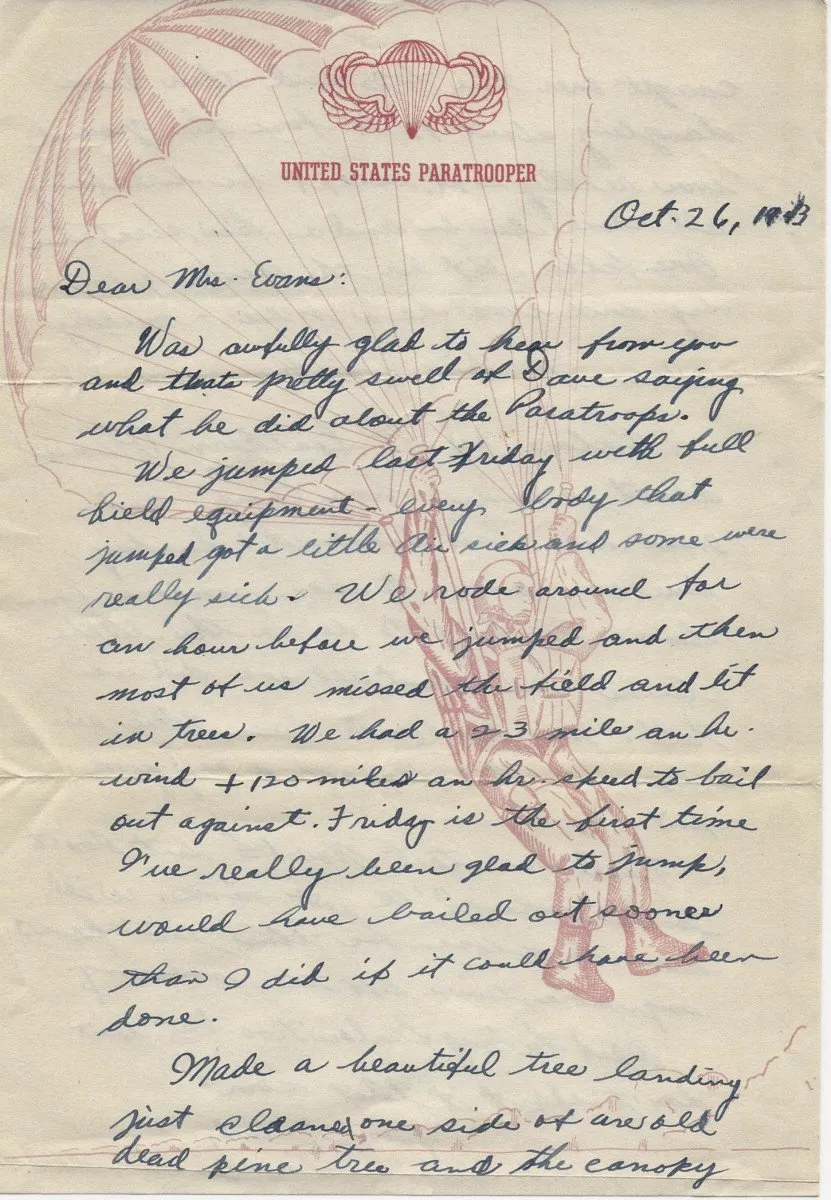 UNITED STATES PARATROOPER
Oct. 26,
Dear Mrs. Evans:
Was awfully glad to hear from you
and thats pretty swell of Dave saying
what he did about the Paratroops.
We jumped last Friday with full
field equipment - every body that
jumped got a little Air sick and some were
really sick. We rode around for
an hour before we jumped and then
most of us missed the field and lit
in trees. We had a 23 mile an hr.
wind + 120 miles an hr. speed to bail
out against. Friday is the first time
I've really been glad to jump,
would have bailed out sooner
than I did if it could have been
done.
Made a beautiful tree landing
just cleaned one side of an old
dead pine tree and the canopy